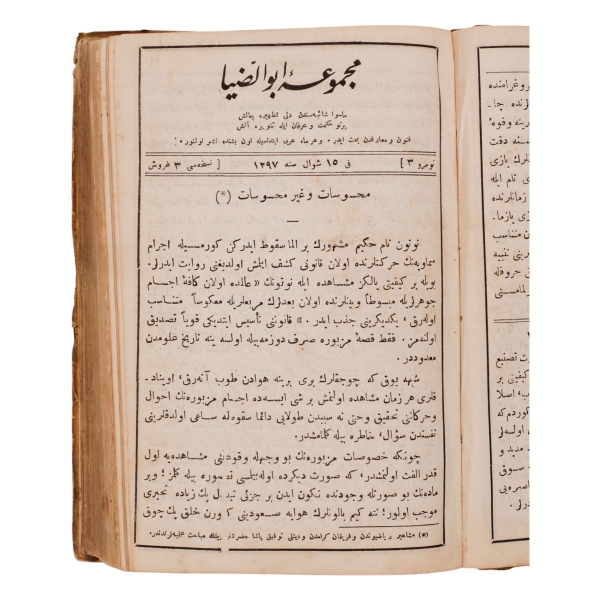 مجموعهٔ ابوالضیا
ماسوا شائبه‌سندن دلی تطهیره چالش
پرتو حکمت و عرفان ایله تنویره آلش
فنون و معارفدن بحث ایدر . و هر ماه عربی ابتداسیله اون بشنده نشر اولنور .
نومرو ٣ ] فی ١٥ شوال سنه ١٢٩٧ [ نسخه‌سی ٣ غروش
محسوسات و غیر محسوسات (*)
نوتون نام حکیم مشهورك بر الما سقوط ایدرکن کورمسیله اجرام
سماویه‌نك حرکتلرنده اولان قانونی کشف ایتمش اولدیغنی روایت ایدرلر.
بویله بر کیفیتی یالکز مشاهده ایله نوتونك « عالمده اولان کافهٔ اجسام
جوهرلریله مبسوطاً وبینلرنده اولان بعدلرك مربعلریله معکوساً متناسب
اوله‌رق ، یکدیکرینی جذب ایدر . » قانوننی تأسیس ایتدیکی قویاً تصدیق
اولنه‌مز . فقط قصهٔ مزبوره صرف دوزمه‌بیله اولسه ینه تاریخ علومدن
معدوددر .
شبهه یوق که چوجقلرك بری برینه هوادن طوب آته‌رق ، اویناد-
قلری هر زمان مشاهده اولنمش بر شی ایسه‌ده اجسام مزبوره‌نك احوال
وحرکاتنی تحقیق وحتی نه سببدن طولایی دائما سقوطه ساعی اولدقلرینی
نفسندن سؤال ، خاطره بیله کلمامشدر .
چونکه خصوصات مزبوره‌نك بو وجهله وقوعنی مشاهده‌یه اول
قدر الفت اولنمشدر، که صورت دیکرده اوله‌بیلمسی تصوره بیله کلمز ؛ وبر
ماده‌نك بو صورتله وجودنده تکون ایدن بر جزئی تبدل پك زیاده تحیری
موجب اولور ؛ نته کیم بالونلرك هوایه صعودینی کورن خلق پك چوق
(*) مشاهیر ریاضیوندن و فریقان کرامدن ودینلی توفیق پاشا حضرتلرینك مباحث علمیه‌لرندندر.